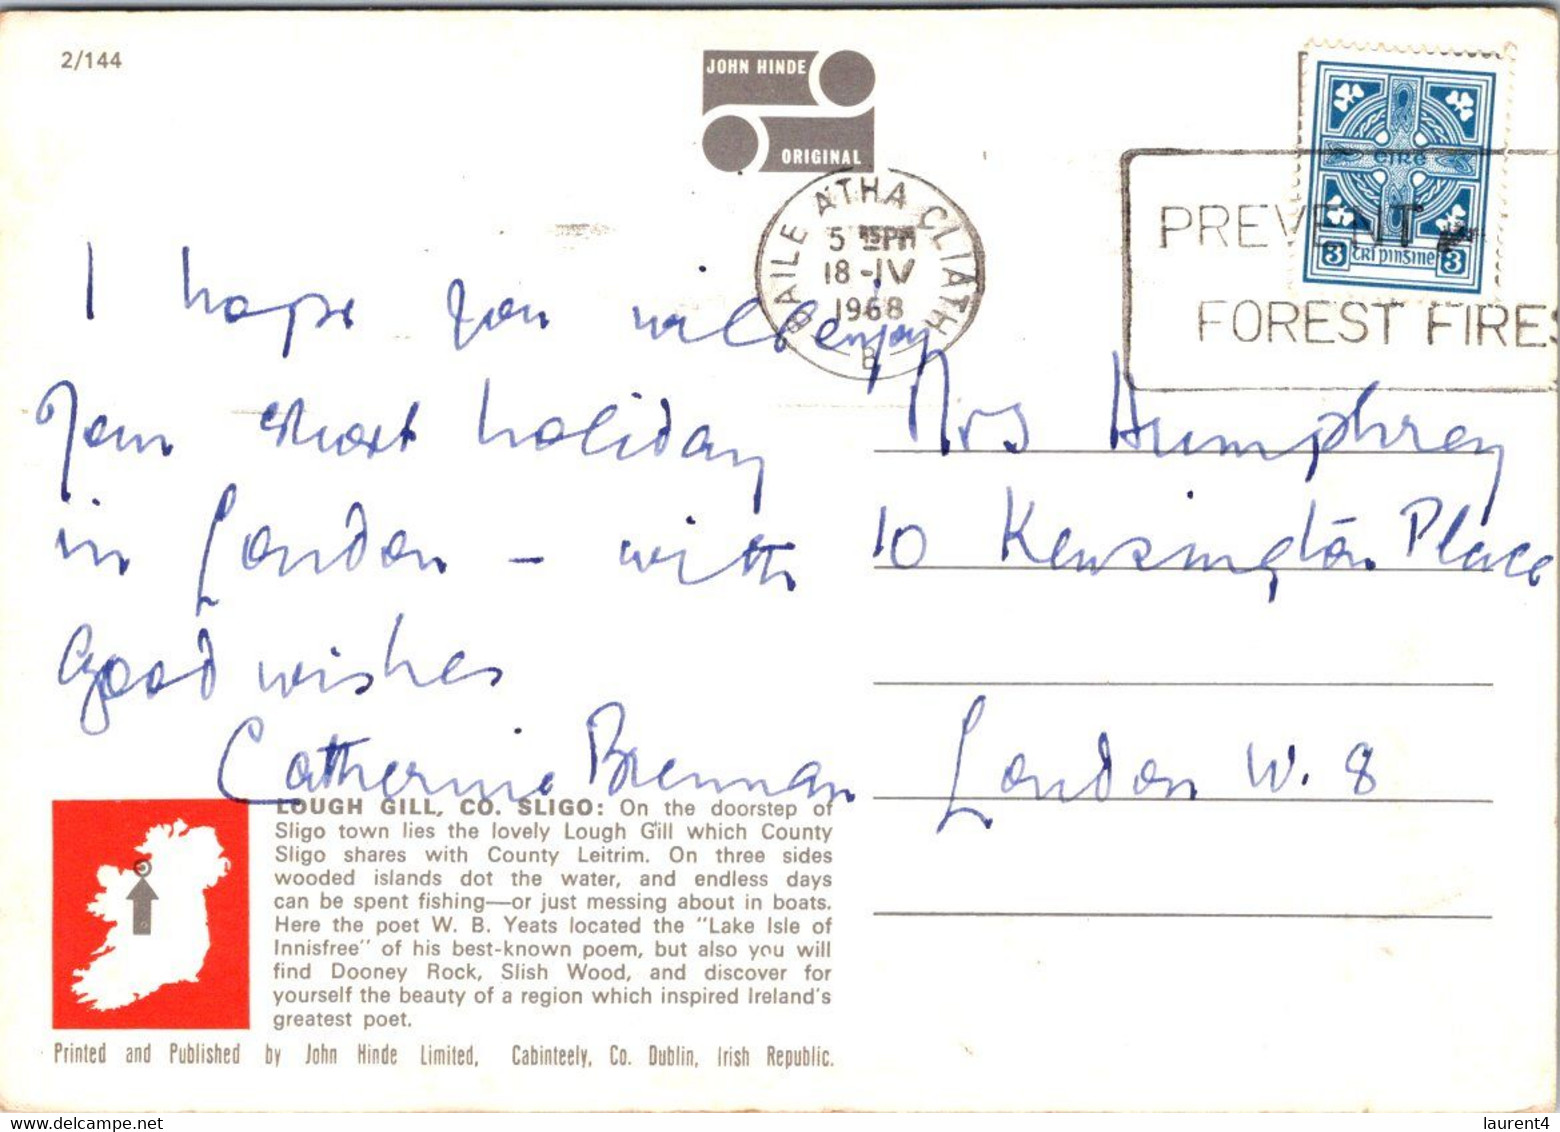 2/144
JOHN HINDE
ORIGINAL
BAILE ATHA CLIATH
5 15PM
18-IV
1968
B
PREVENT
FOREST FIRES
éire
3 trí pingine 3
I hope you will enjoy
your short holiday
in London – with
good wishes
Catherine Brennan
Mrs Humphrey
10 Kensington Place
London W. 8
LOUGH GILL, CO. SLIGO: On the doorstep of
Sligo town lies the lovely Lough Gill which County
Sligo shares with County Leitrim. On three sides
wooded islands dot the water, and endless days
can be spent fishing—or just messing about in boats.
Here the poet W. B. Yeats located the "Lake Isle of
Innisfree" of his best-known poem, but also you will
find Dooney Rock, Slish Wood, and discover for
yourself the beauty of a region which inspired Ireland's
greatest poet.
Printed and Published by John Hinde Limited, Cabinteely, Co. Dublin, Irish Republic.
laurent4